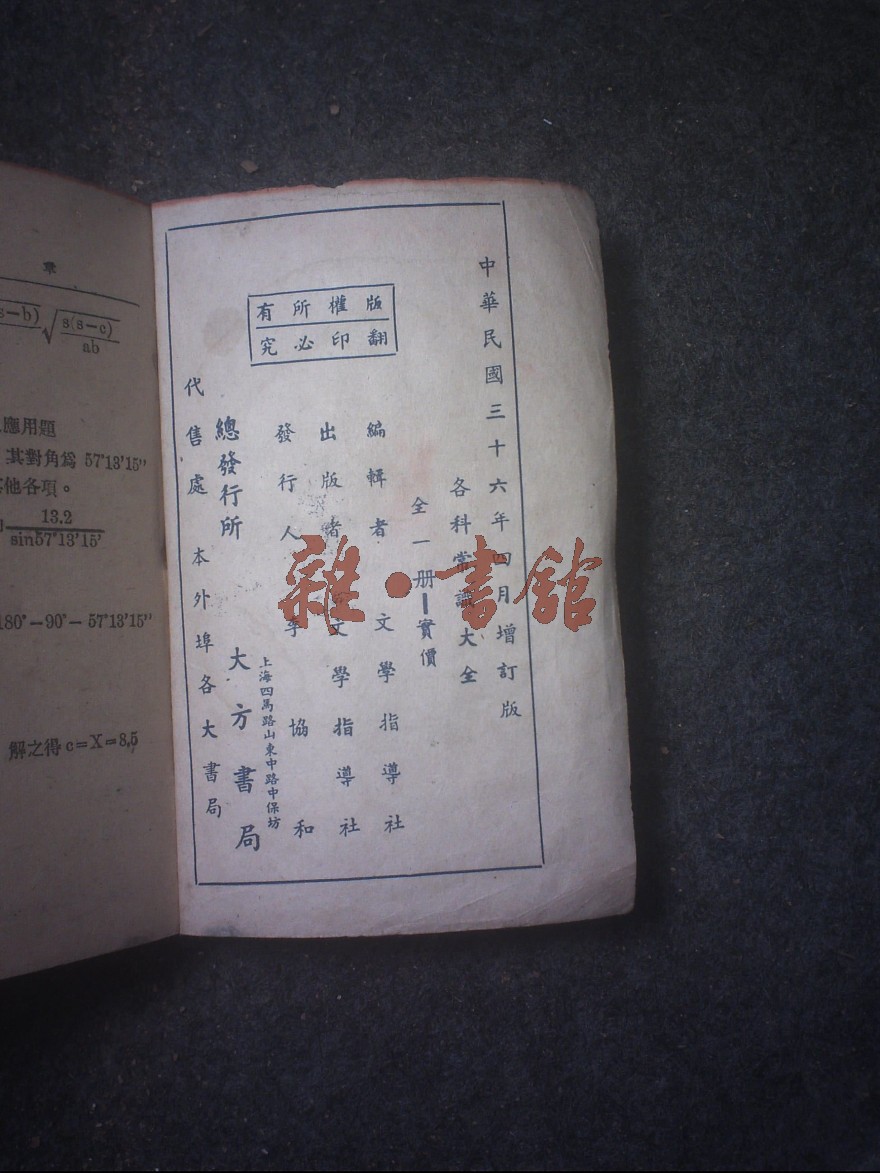 中華民國三十六年四月增訂版
各科常識大全
全一册 實價
版權所有
翻印必究
編輯者 文學指導社
出版者 文學指導社
發行人 李協和
上海四馬路山東中路中保坊
總發行所 大方書局
代售處 本外埠各大書局
雜·書館
章
s(s-c)
ab
應用題
其對角爲 57°13'15"
他各項。
13.2
sin57°13'15'
180°-90°-57°13'15"
解之得 c=X=8,5